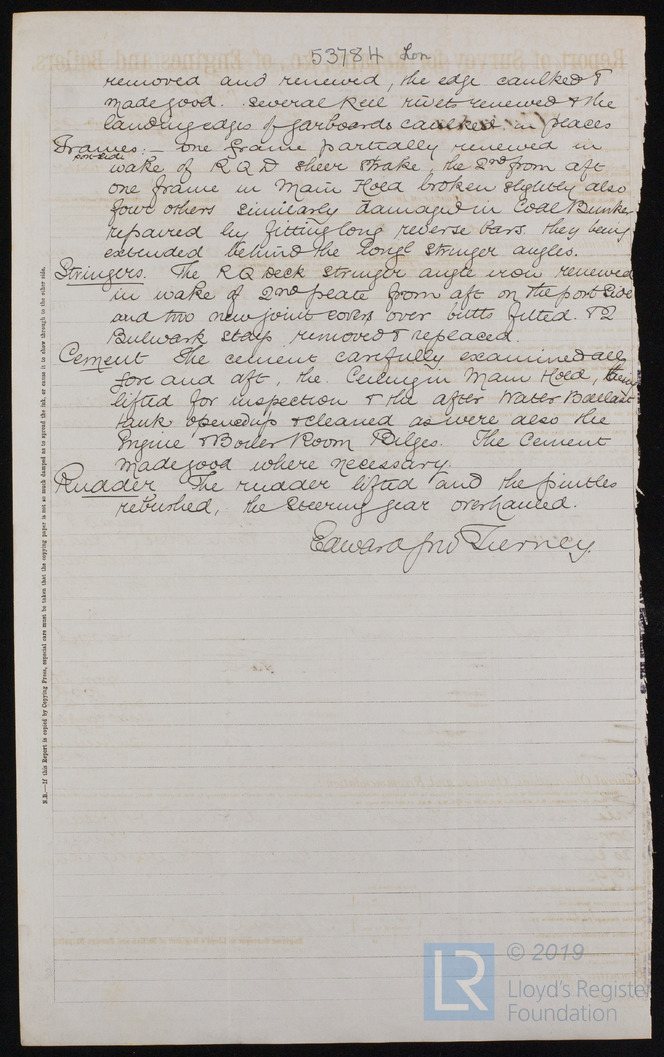 53784 Lon
removed and renewed, the edge caulked &
made good. Several keel rivets renewed & the
landing edges of garboards caulked in places
Frames:— One frame partially renewed in
port side
wake of R Q D sheer strake, the 2nd from aft
one frame in Main Hold broken slightly also
four others similarly damaged in Coal Bunker
repaired by fitting long reverse bars. they being
extended behind the longl stringer angles.
Stringers. The R Q Deck stringer angle iron renewed
in wake of 2nd plate from aft on the port side
and two new joint covers over butts fitted. & 2
Bulwark stays removed & replaced.
Cement The cement carefully examined all
fore and aft, the Ceiling in Main Hold, being
lifted for inspection & the after Water Ballast
tank opened up & cleaned as were also the
Engine & Boiler Room Bilges. The Cement
made good where necessary.
Rudder The rudder lifted and the pintles
rebushed, the steering gear overhauled.
Edward Jno Tierney.
N.B.—If this Report is copied by Copying Press, especial care must be taken that the copying paper is not so much damped as to spread the ink, or cause it to show through to the other side.
LR © 2019
Lloyd's Register
Foundation